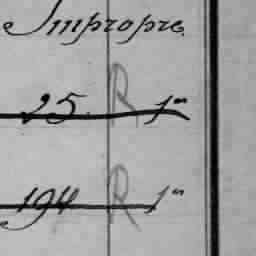 Impropre
25. R 1"
194 R 1"